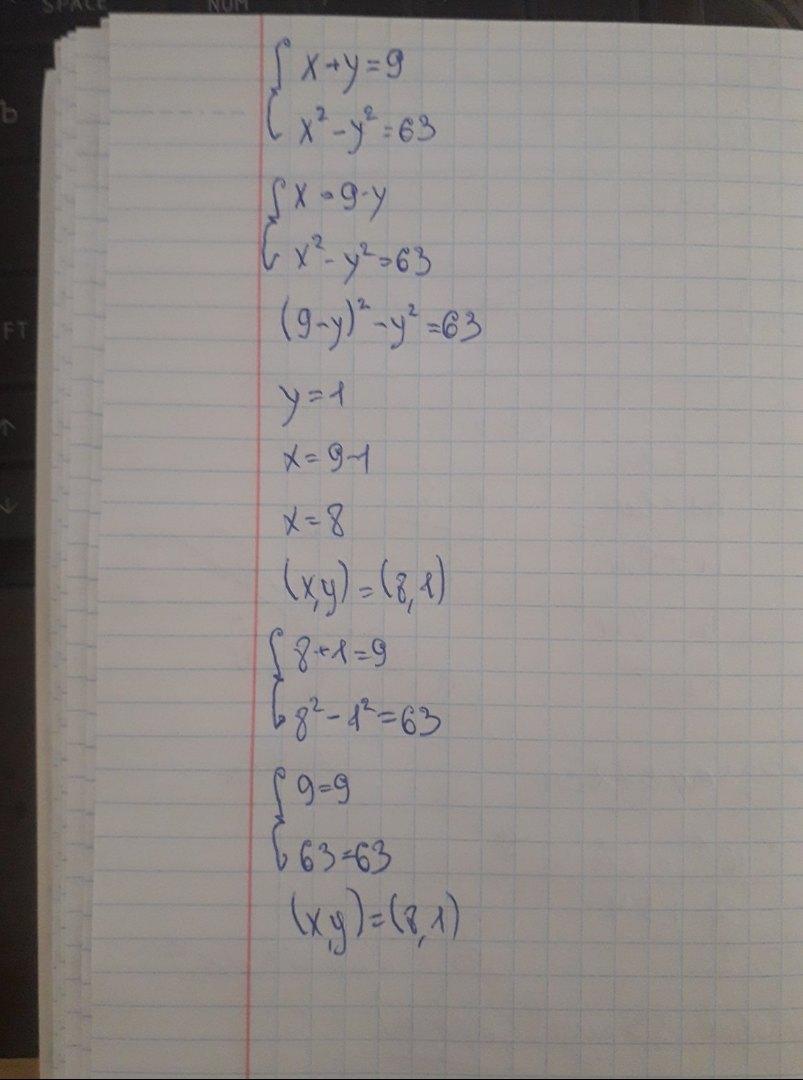 SPACE NUM
{ x+y=9
x²-y²=63
{ x=9-y
x²-y²=63
(9-y)²-y²=63
y=1
x=9-1
x=8
(x,y)=(8,1)
{ 8+1=9
8²-1²=63
{ 9=9
63=63
(x,y)=(8,1)
b
FT
↑
↓